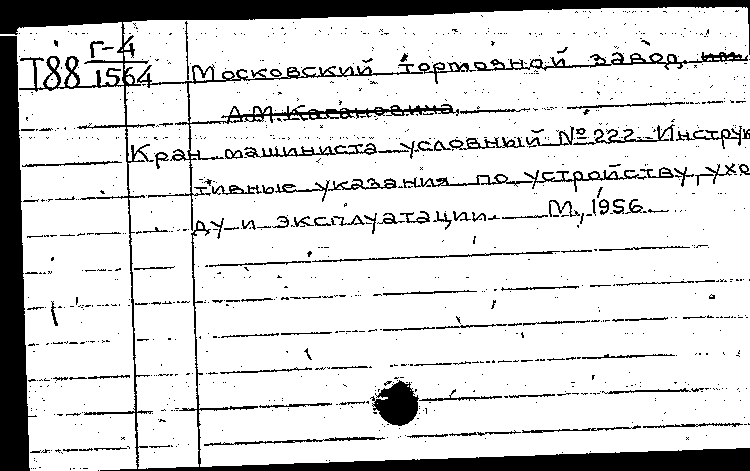 Т88 Г-4
1564
Московский тормозной завод им.
А.М. Кагановича.
Кран машиниста условный № 222. Инструк
тивные указания по устройству, ухо
ду и эксплуатации. М., 1956.